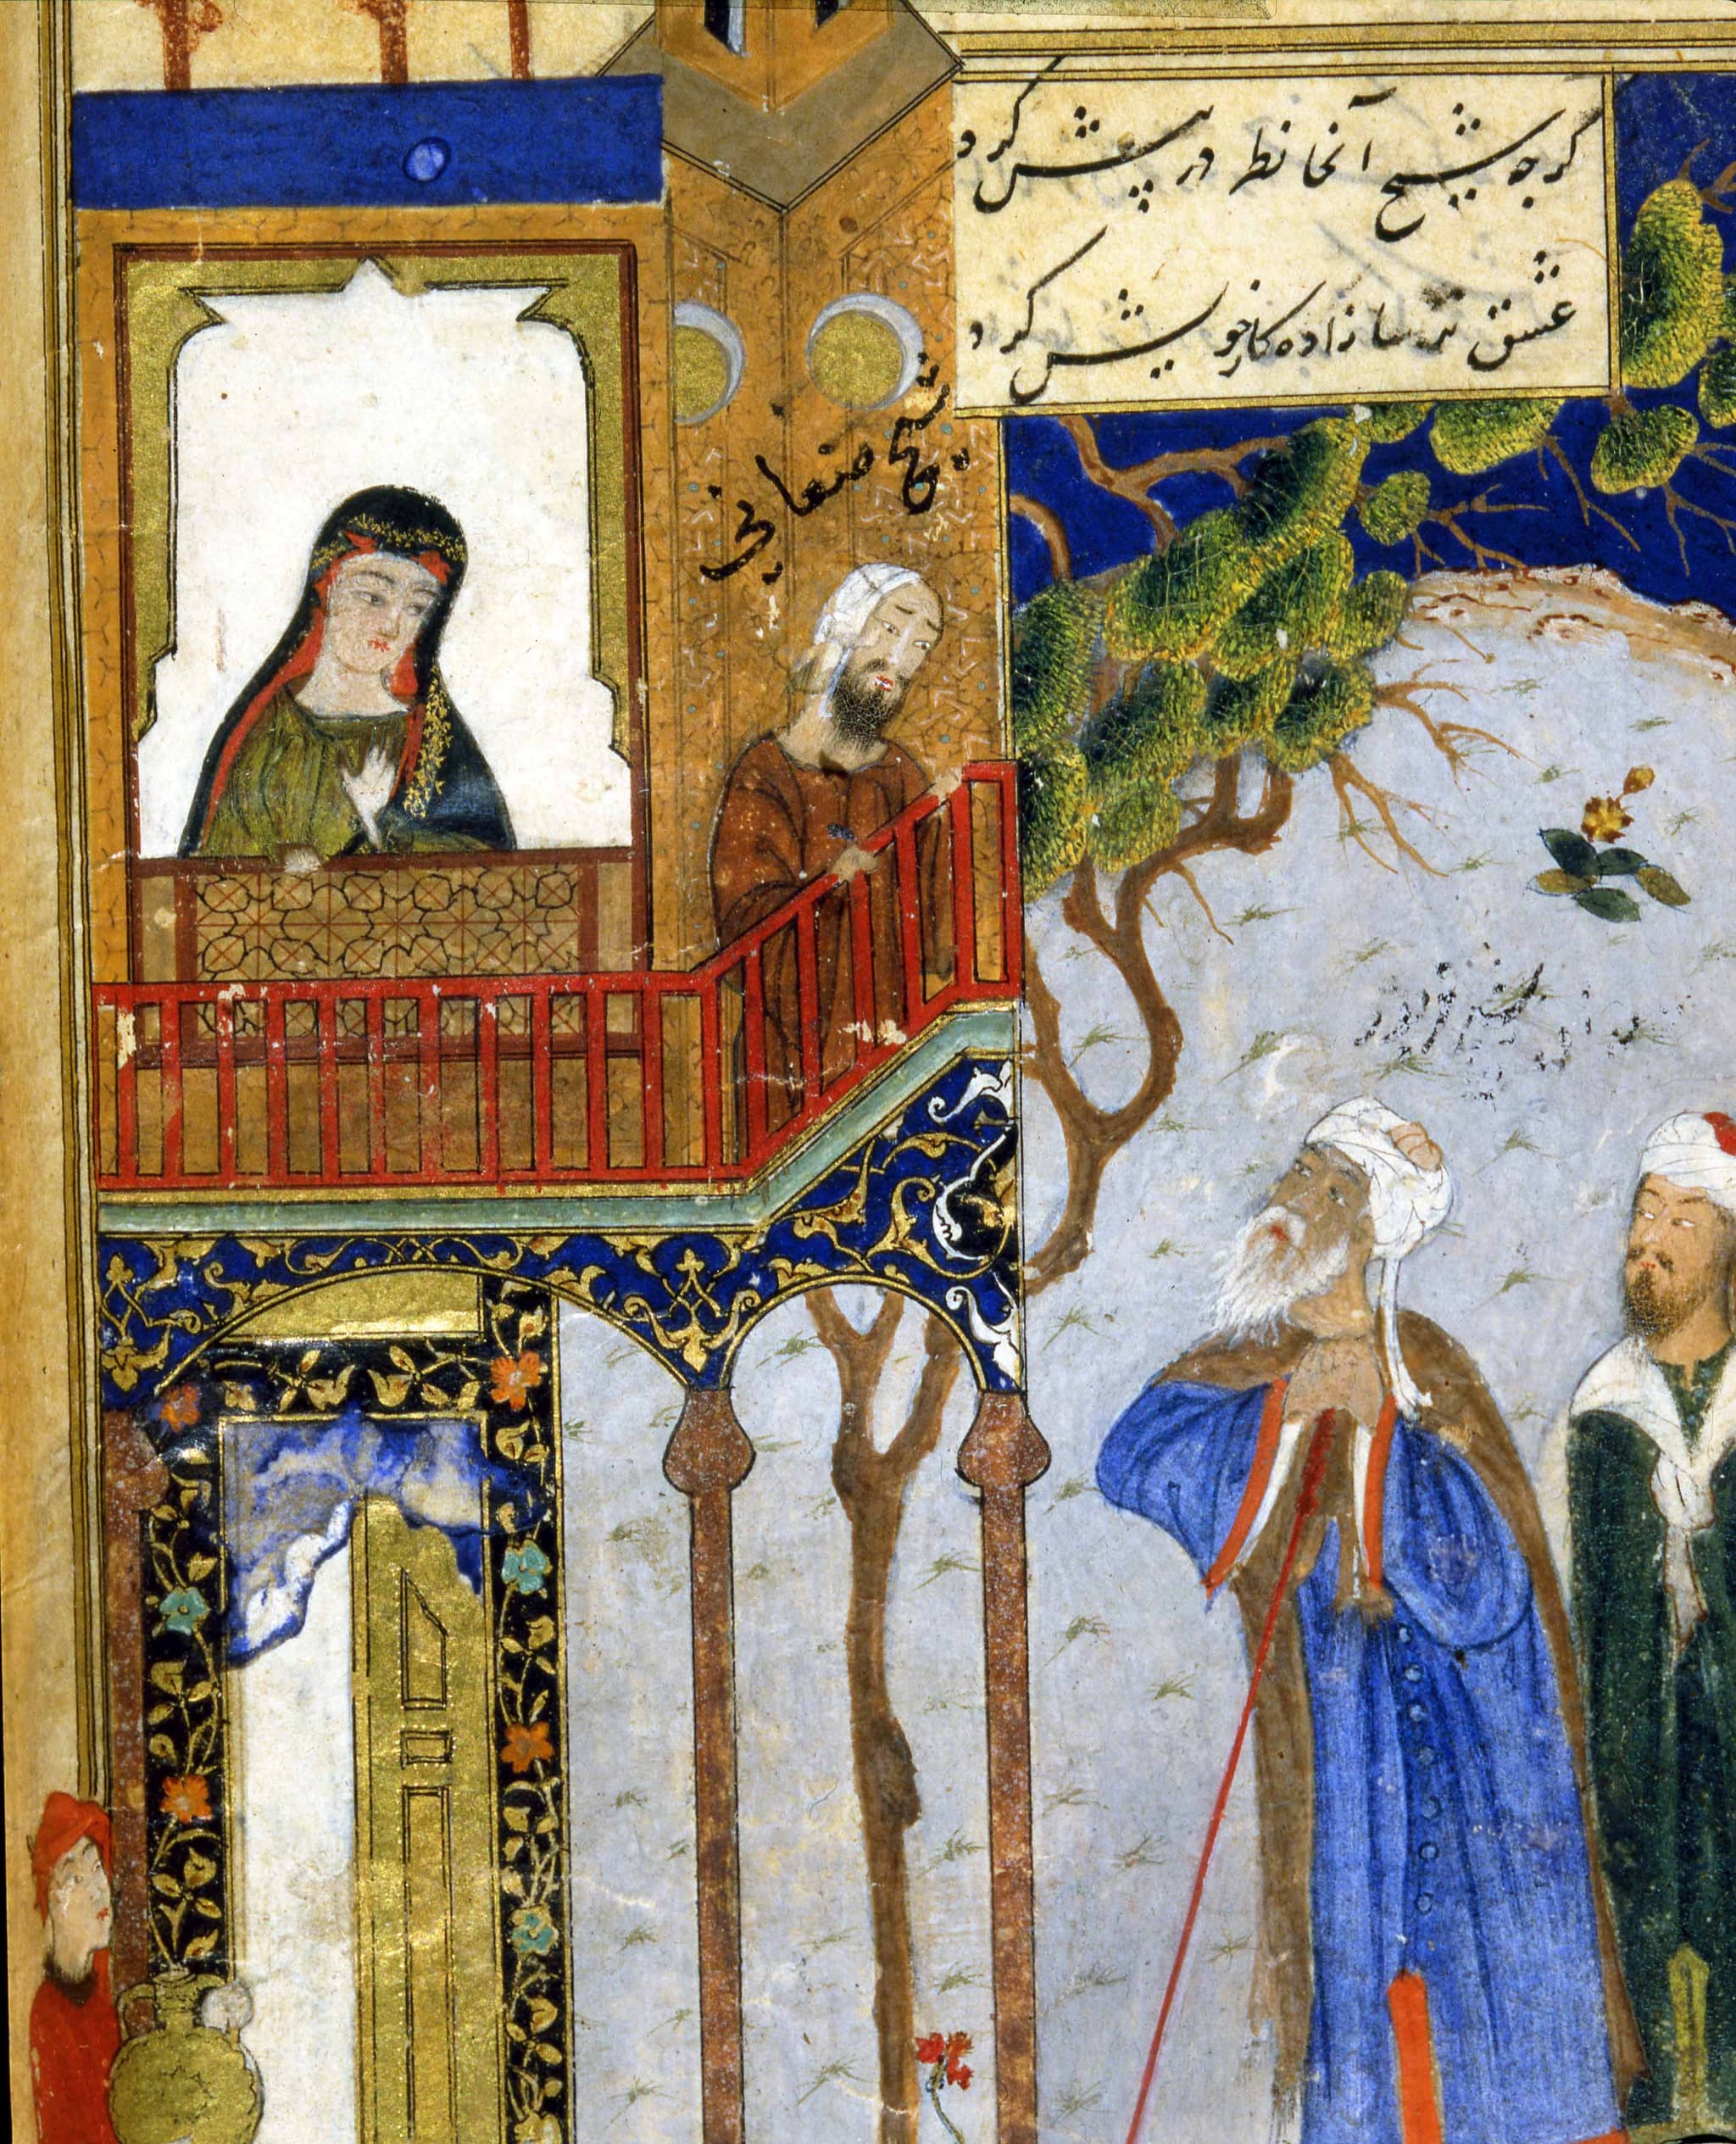 گرچه شیخ آنجا نظر در پیش کرد
عشق ترسا زاده کار خویش کرد
شیخ صنعانی